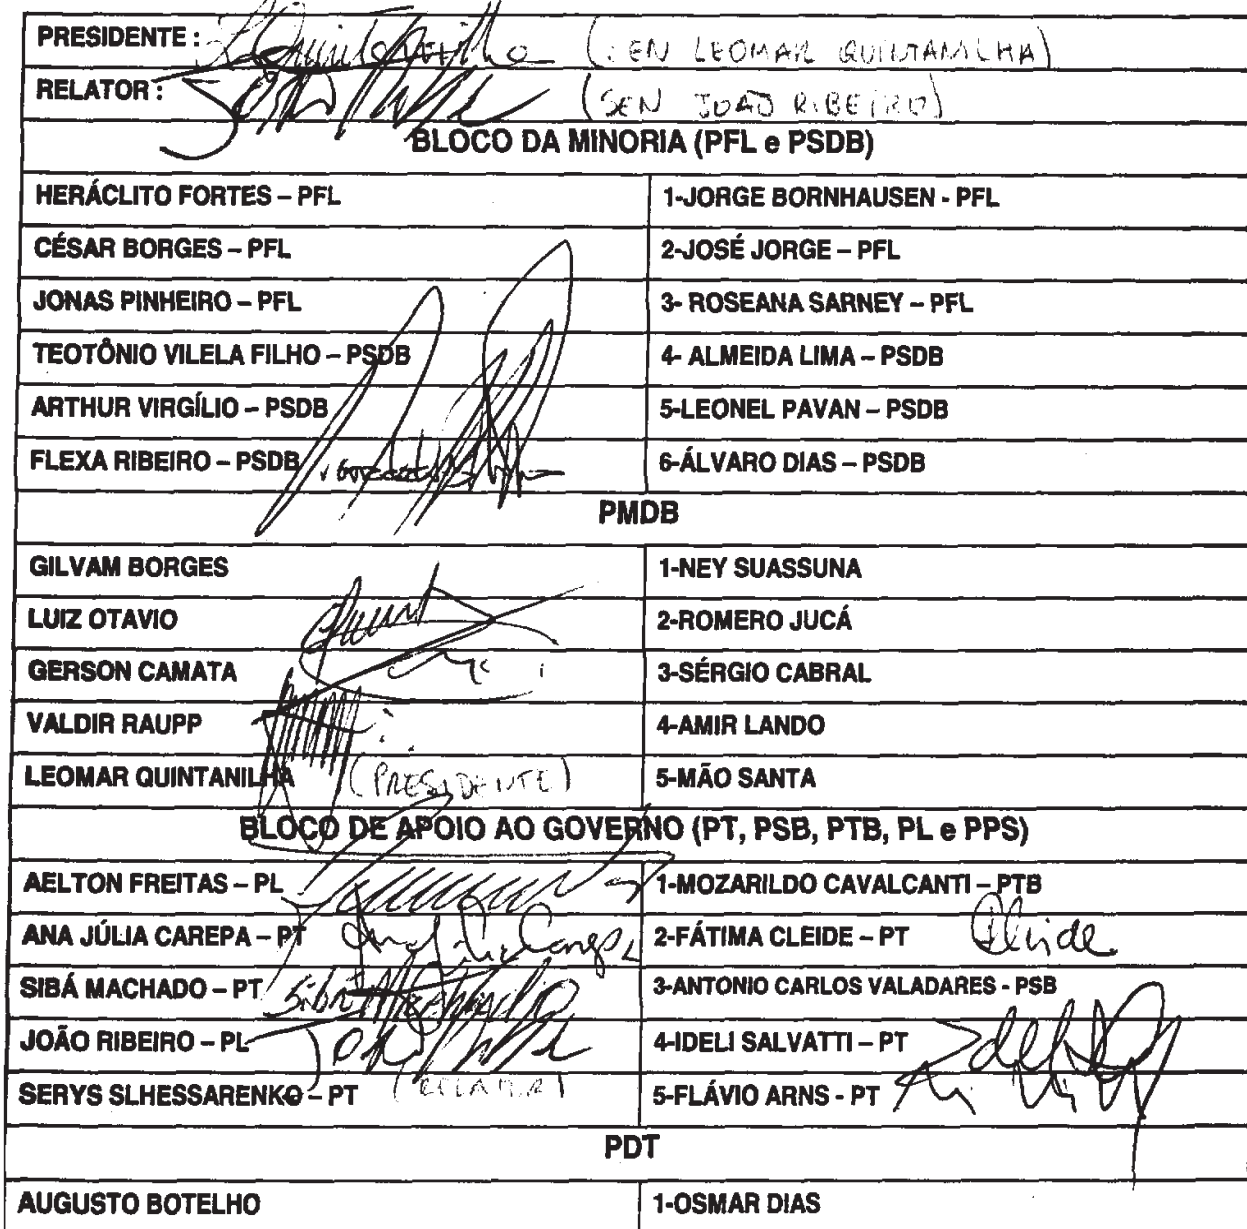 PRESIDENTE : (SEN LEOMAR QUINTANILHA)
RELATOR : (SEN JOÃO RIBEIRO)
BLOCO DA MINORIA (PFL e PSDB)
HERÁCLITO FORTES – PFL 1-JORGE BORNHAUSEN - PFL
CÉSAR BORGES – PFL 2-JOSÉ JORGE – PFL
JONAS PINHEIRO – PFL 3- ROSEANA SARNEY – PFL
TEOTÔNIO VILELA FILHO – PSDB 4- ALMEIDA LIMA – PSDB
ARTHUR VIRGÍLIO – PSDB 5-LEONEL PAVAN – PSDB
FLEXA RIBEIRO – PSDB 6-ÁLVARO DIAS – PSDB
PMDB
GILVAM BORGES 1-NEY SUASSUNA
LUIZ OTAVIO 2-ROMERO JUCÁ
GERSON CAMATA 3-SÉRGIO CABRAL
VALDIR RAUPP 4-AMIR LANDO
LEOMAR QUINTANILHA (PRESIDENTE) 5-MÃO SANTA
BLOCO DE APOIO AO GOVERNO (PT, PSB, PTB, PL e PPS)
AELTON FREITAS – PL 1-MOZARILDO CAVALCANTI – PTB
ANA JÚLIA CAREPA – PT Ana Júlia Carepa 2-FÁTIMA CLEIDE – PT Cleide
SIBÁ MACHADO – PT Sibá Machado 3-ANTONIO CARLOS VALADARES - PSB
JOÃO RIBEIRO – PL 4-IDELI SALVATTI – PT
SERYS SLHESSARENKO – PT (RELATOR) 5-FLÁVIO ARNS - PT
PDT
AUGUSTO BOTELHO 1-OSMAR DIAS